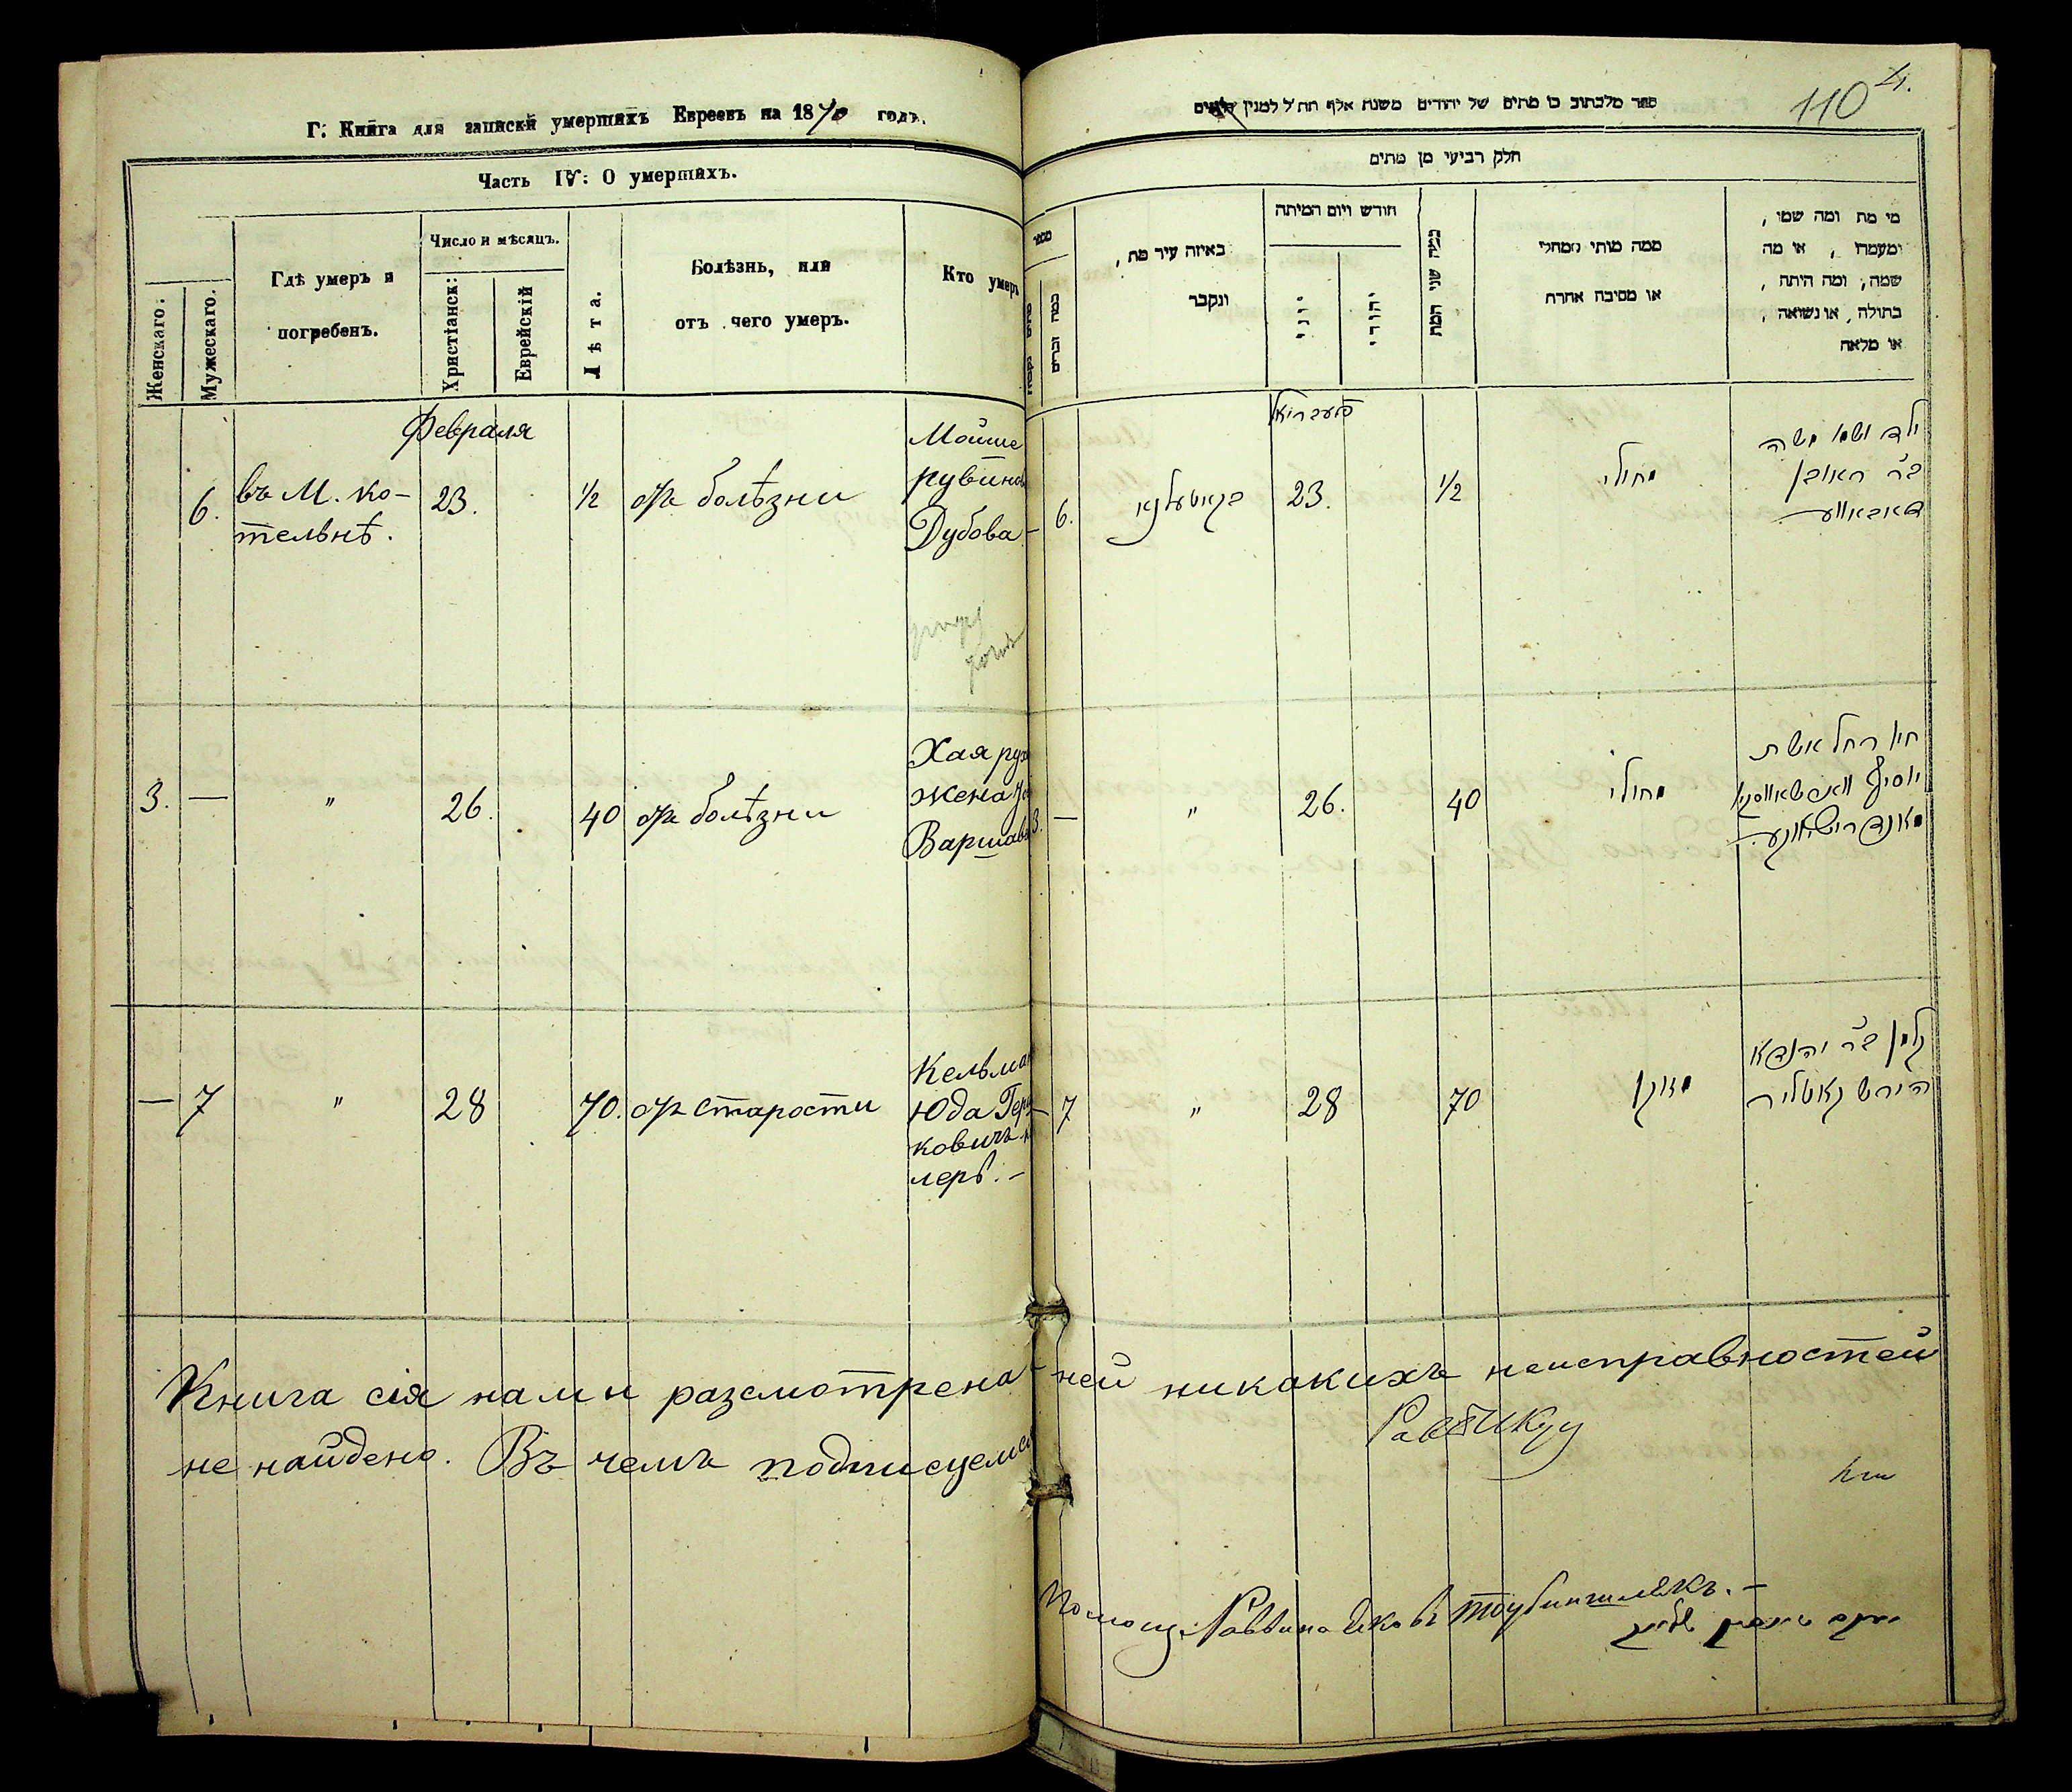 Г. Книга для записки умершихъ Евреевъ на 1870 годъ.
Часть IV: О умершихъ.
Женскаго:
Мужескаго.
Гдѣ умеръ и
погребенъ.
Число и мѣсяцъ.
Христіанск:
Еврейскій
Лѣта.
Болѣзнь, или
отъ чего умеръ.
Кто умеръ
Февраля
6.
въ М. ко-
тельнѣ.
23.
1/2
отъ болѣзни
Мойше
рувинов
Дубова
3. —
"
26.
40
отъ болѣзни
Хая рух
жена
Варшав
— 7
"
28
70.
отъ старости
Кельма
Юда Гер
ковичъ
леръ. —
Книга сія нами разсмотрена
не найдено. Въ чемъ подписуемся
110
4.
ספר מלכתוב בו מתים של יהודים משנת אלף תת״ל למנין
חלק רביעי מן מתים
כמה זכרים
באיזה עיר מת,
ונקבר
חודש ויום המיתה
יוני
יהודי
כמה שני המת
ממה מותו ממחלי
או מסיבה אחרת
מי מת ומה שמו,
ומעמדו, או מה
שמה, ומה היתה,
בתולה, או נשואה,
או מלאה
פעברואל
6.
23.
1/2
מחולי
ילד ושמו משה
ב״ר ראובן
3. —
"
26.
40
מחולי
חיה רחל אשת
יוסיף
— 7
"
28
70
מזוקן
קלמן ב״ר יהודא
הירש קאטליר
ней никакихъ неисправностей
Помощ. Раввина